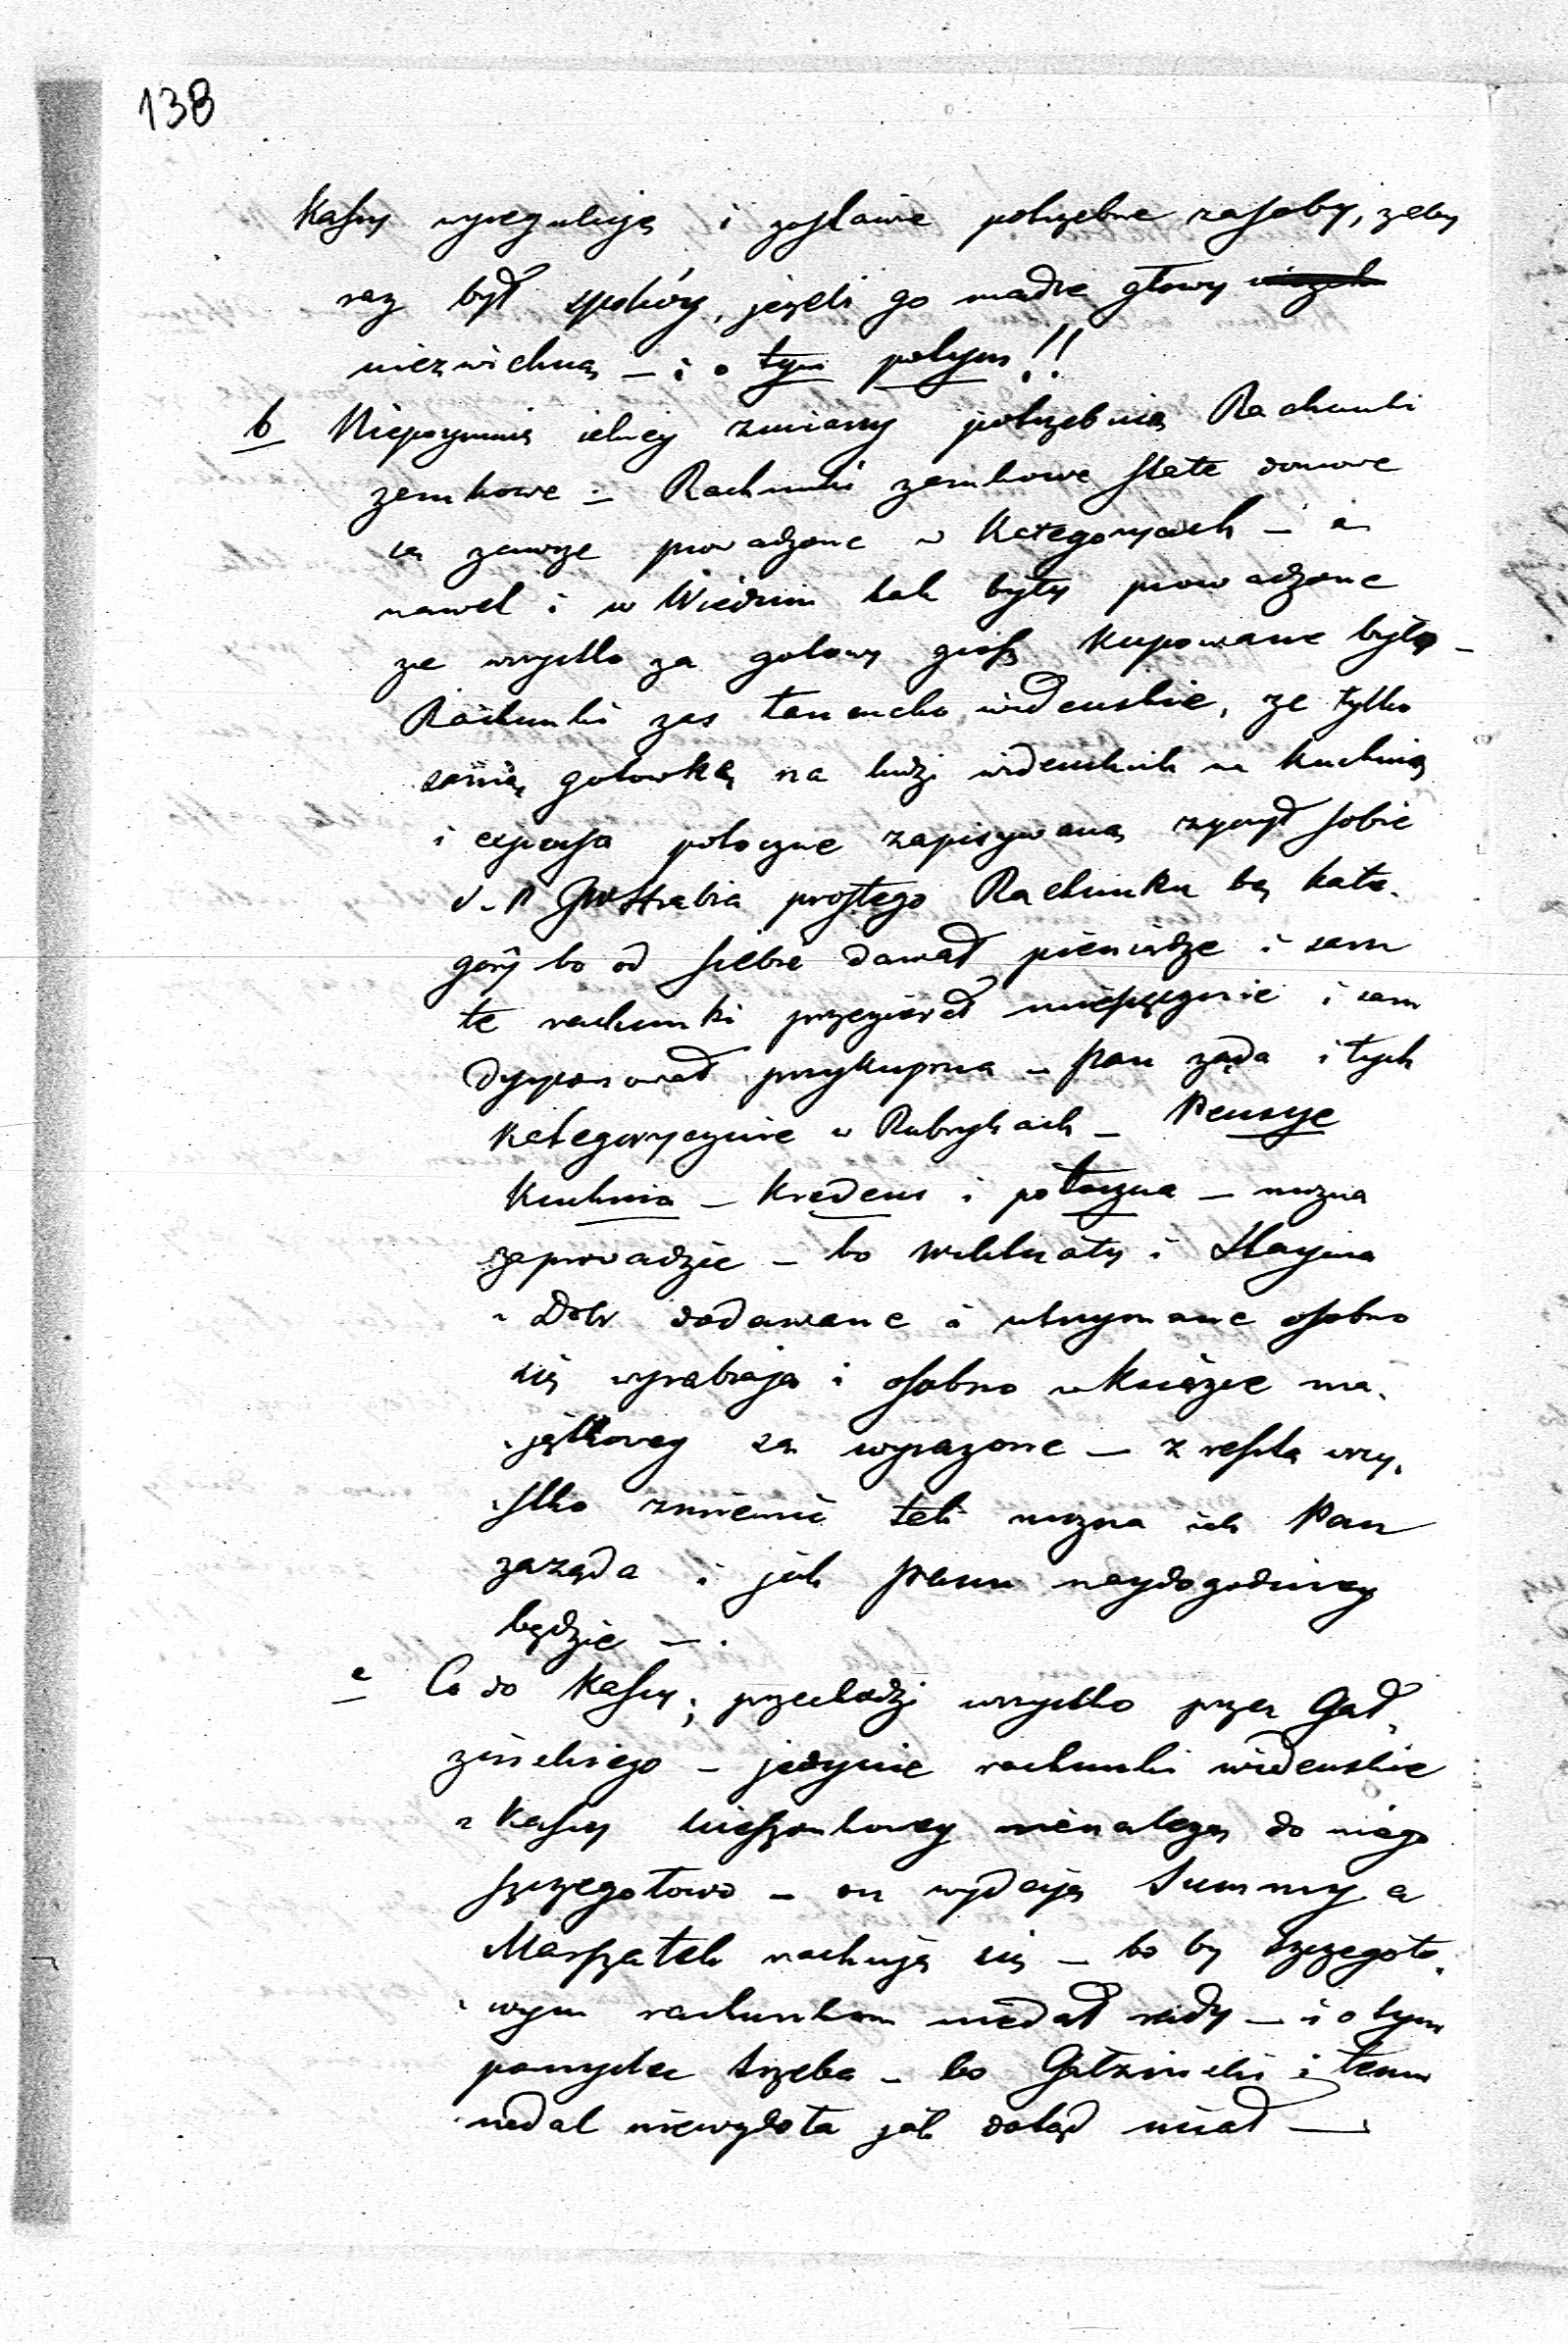 138
Kassy wyreguluję i zostawię potrzebne zasoby, zeby
raz był spokóy, jezeli go mądre głowy
niezwichną – i o tym potym!!
b Niepoymuię iakiey zmiany potrzebuią Rachunki
zamkowe – Rachunki zamkowe stałe domowe
są zawsze prowadzone w Kategoryach – a
nawet i w Wiedniu tak były prowadzone
ze wszystko za gotowy grosz kupowane było –
Rachunki zas tamecko wideńskie, ze tylko
samą gotowką na ludzi wideńskich na kuchnią
i expensa potoczne zapisywaną zyczył sobie
ś. p JW Hrabia prostego Rachunku bez kate-
góry bo od siebie dawał pieniądze i sam
te rachunki przezierał miesięcznie i sam
dysponował przykupna – Pan ząda i tych
kategorycznie w Rubrykach – Pensye
Kuchnia – Kredens i potoczna – mozna
zaprowadzic – bo wiktuały i Stayma
z Dóbr dodawane a utrzymane osobno
się wyrabiają i osobno w Księzce ma-
jątkowey są wyrazone – z resztą wszy-
stko zmienić tak mozna jak Pan
zaząda i jak Panu naydogodniey
będzie –.
c Co do Kassy; przechodzi wszystko przez Gał-
zińskiego – jedynie rachunki wideńskie
z kassy kieszonkowey nienalezą do niego
szczegołowo – on wydaje Summy a
Marszałek rachuje się – bo by szczegóło-
wym rachunkom niedał rady – i o tym
pomyslec trzeba – bo Gałziński i temu
nadal niewydoła jak dotąd miał –